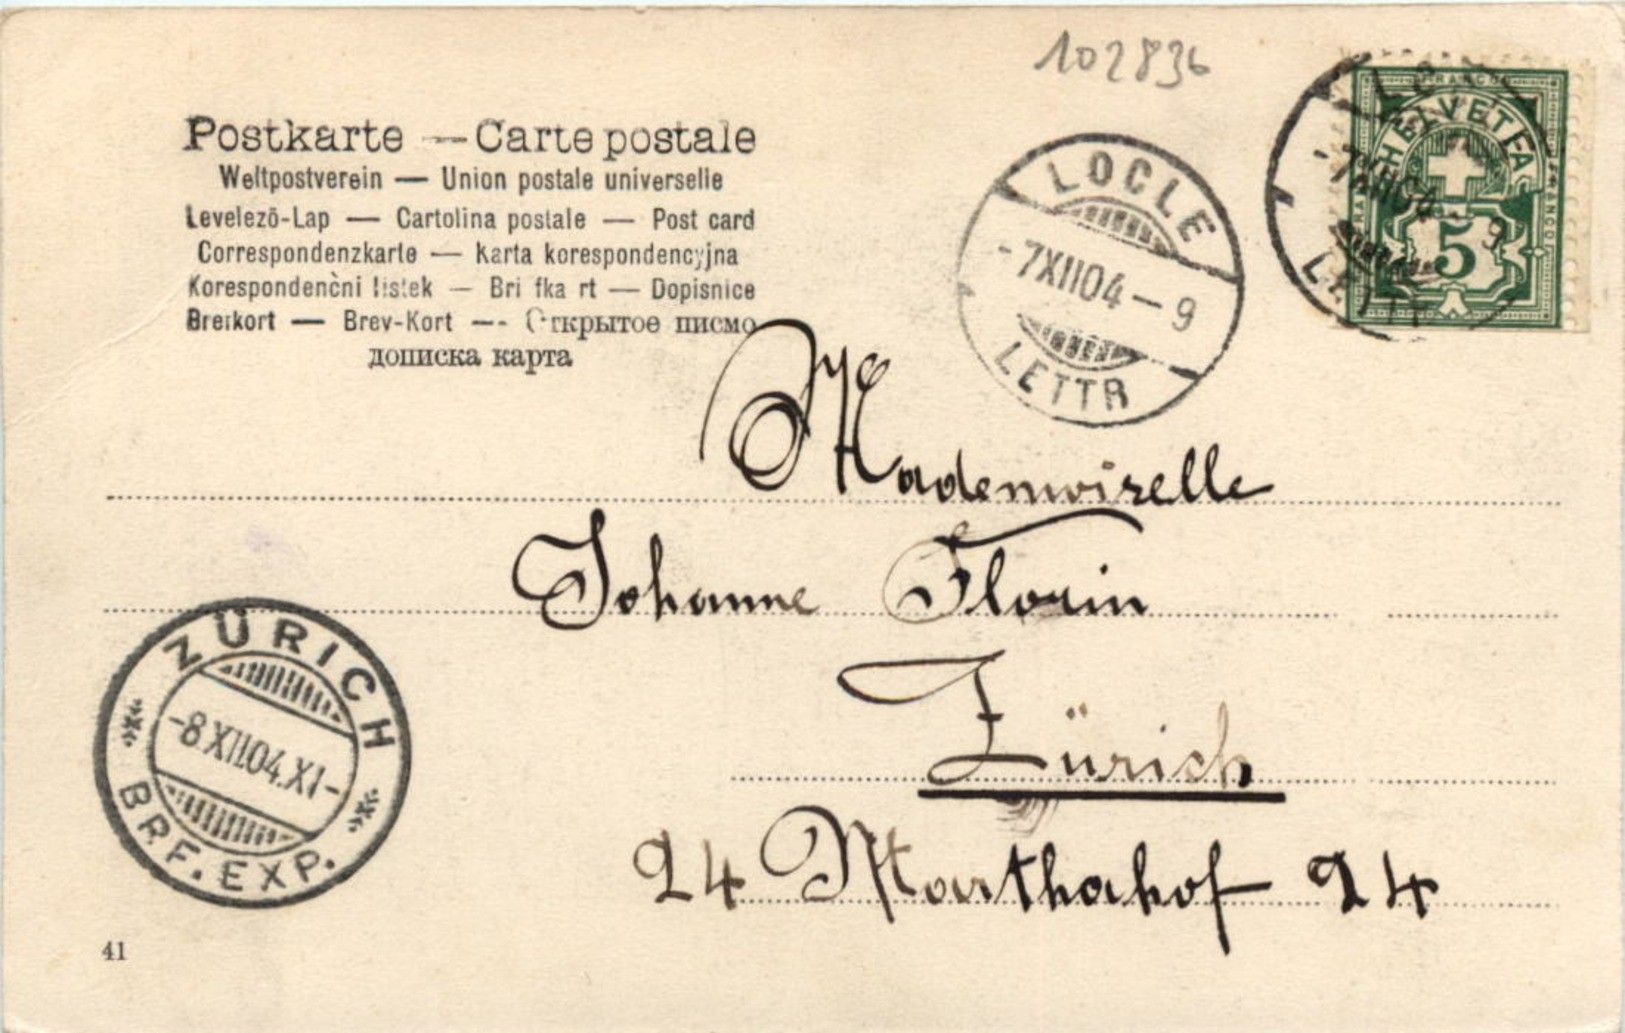 102836
Postkarte — Carte postale
Weltpostverein — Union postale universelle
Levelezõ-Lap — Cartolina postale — Post card
Correspondenzkarte — Karta korespondencyjna
Korespondenčni listek — Bri fka rt — Dopisnice
Brefkort — Brev-Kort — Открытое писмо
дописка карта
HELVETIA
FRANCO
5
-7XII04-9
LETTR
LOCLE
-7XII04-9
LETTR
Mademoiselle
Johanne Florin
Zürich
24 Marthahof 24
ZÜRICH
-8XII04.XI-
BRF.EXP.
41